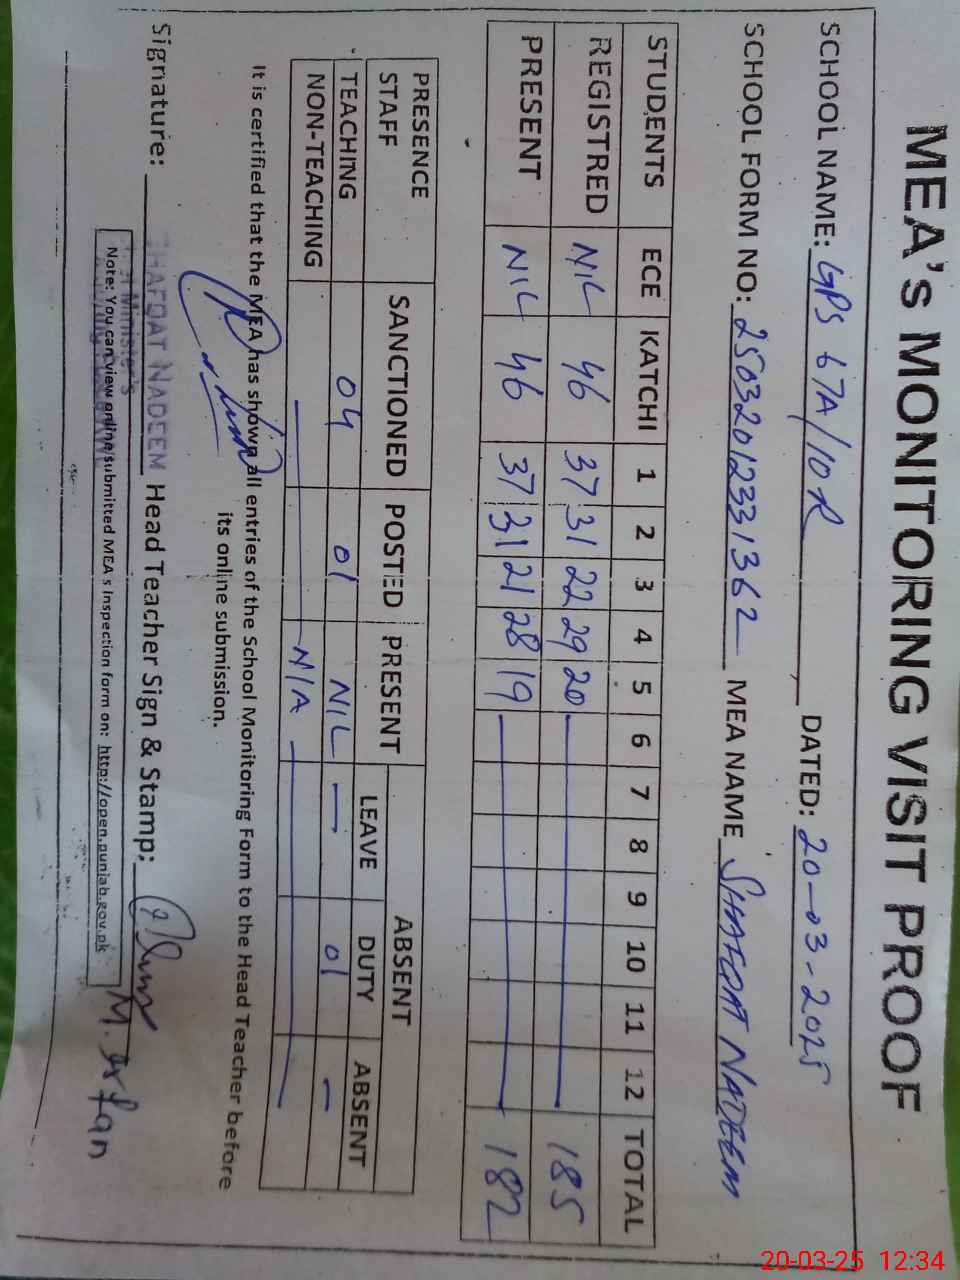 MEA's MONITORING VISIT PROOF
SCHOOL NAME: GPS 67A/10R, DATED: 20-03-2025
SCHOOL FORM NO: 25032012331362 MEA NAME SHAFQAT NADEEM
STUDENTS ECE KATCHI 1 2 3 4 5 6 7 8 9 10 11 12 TOTAL
REGISTRED NIL 46 37 31 22 29 20 185
PRESENT NIL 46 37 31 21 28 19 182
PRESENCE STAFF SANCTIONED POSTED PRESENT ABSENT
LEAVE DUTY ABSENT
TEACHING 04 01 NIL — 01 —
NON-TEACHING N/A
It is certified that the MEA has shown all entries of the School Monitoring Form to the Head Teacher before
its online submission.
Signature: SHAFQAT NADEEM Head Teacher Sign & Stamp:
M. Irfan
Minister's
Note: You can view online/submitted MEA's inspection form on: http://open.punjab.gov.pk
20-03-25 12:34